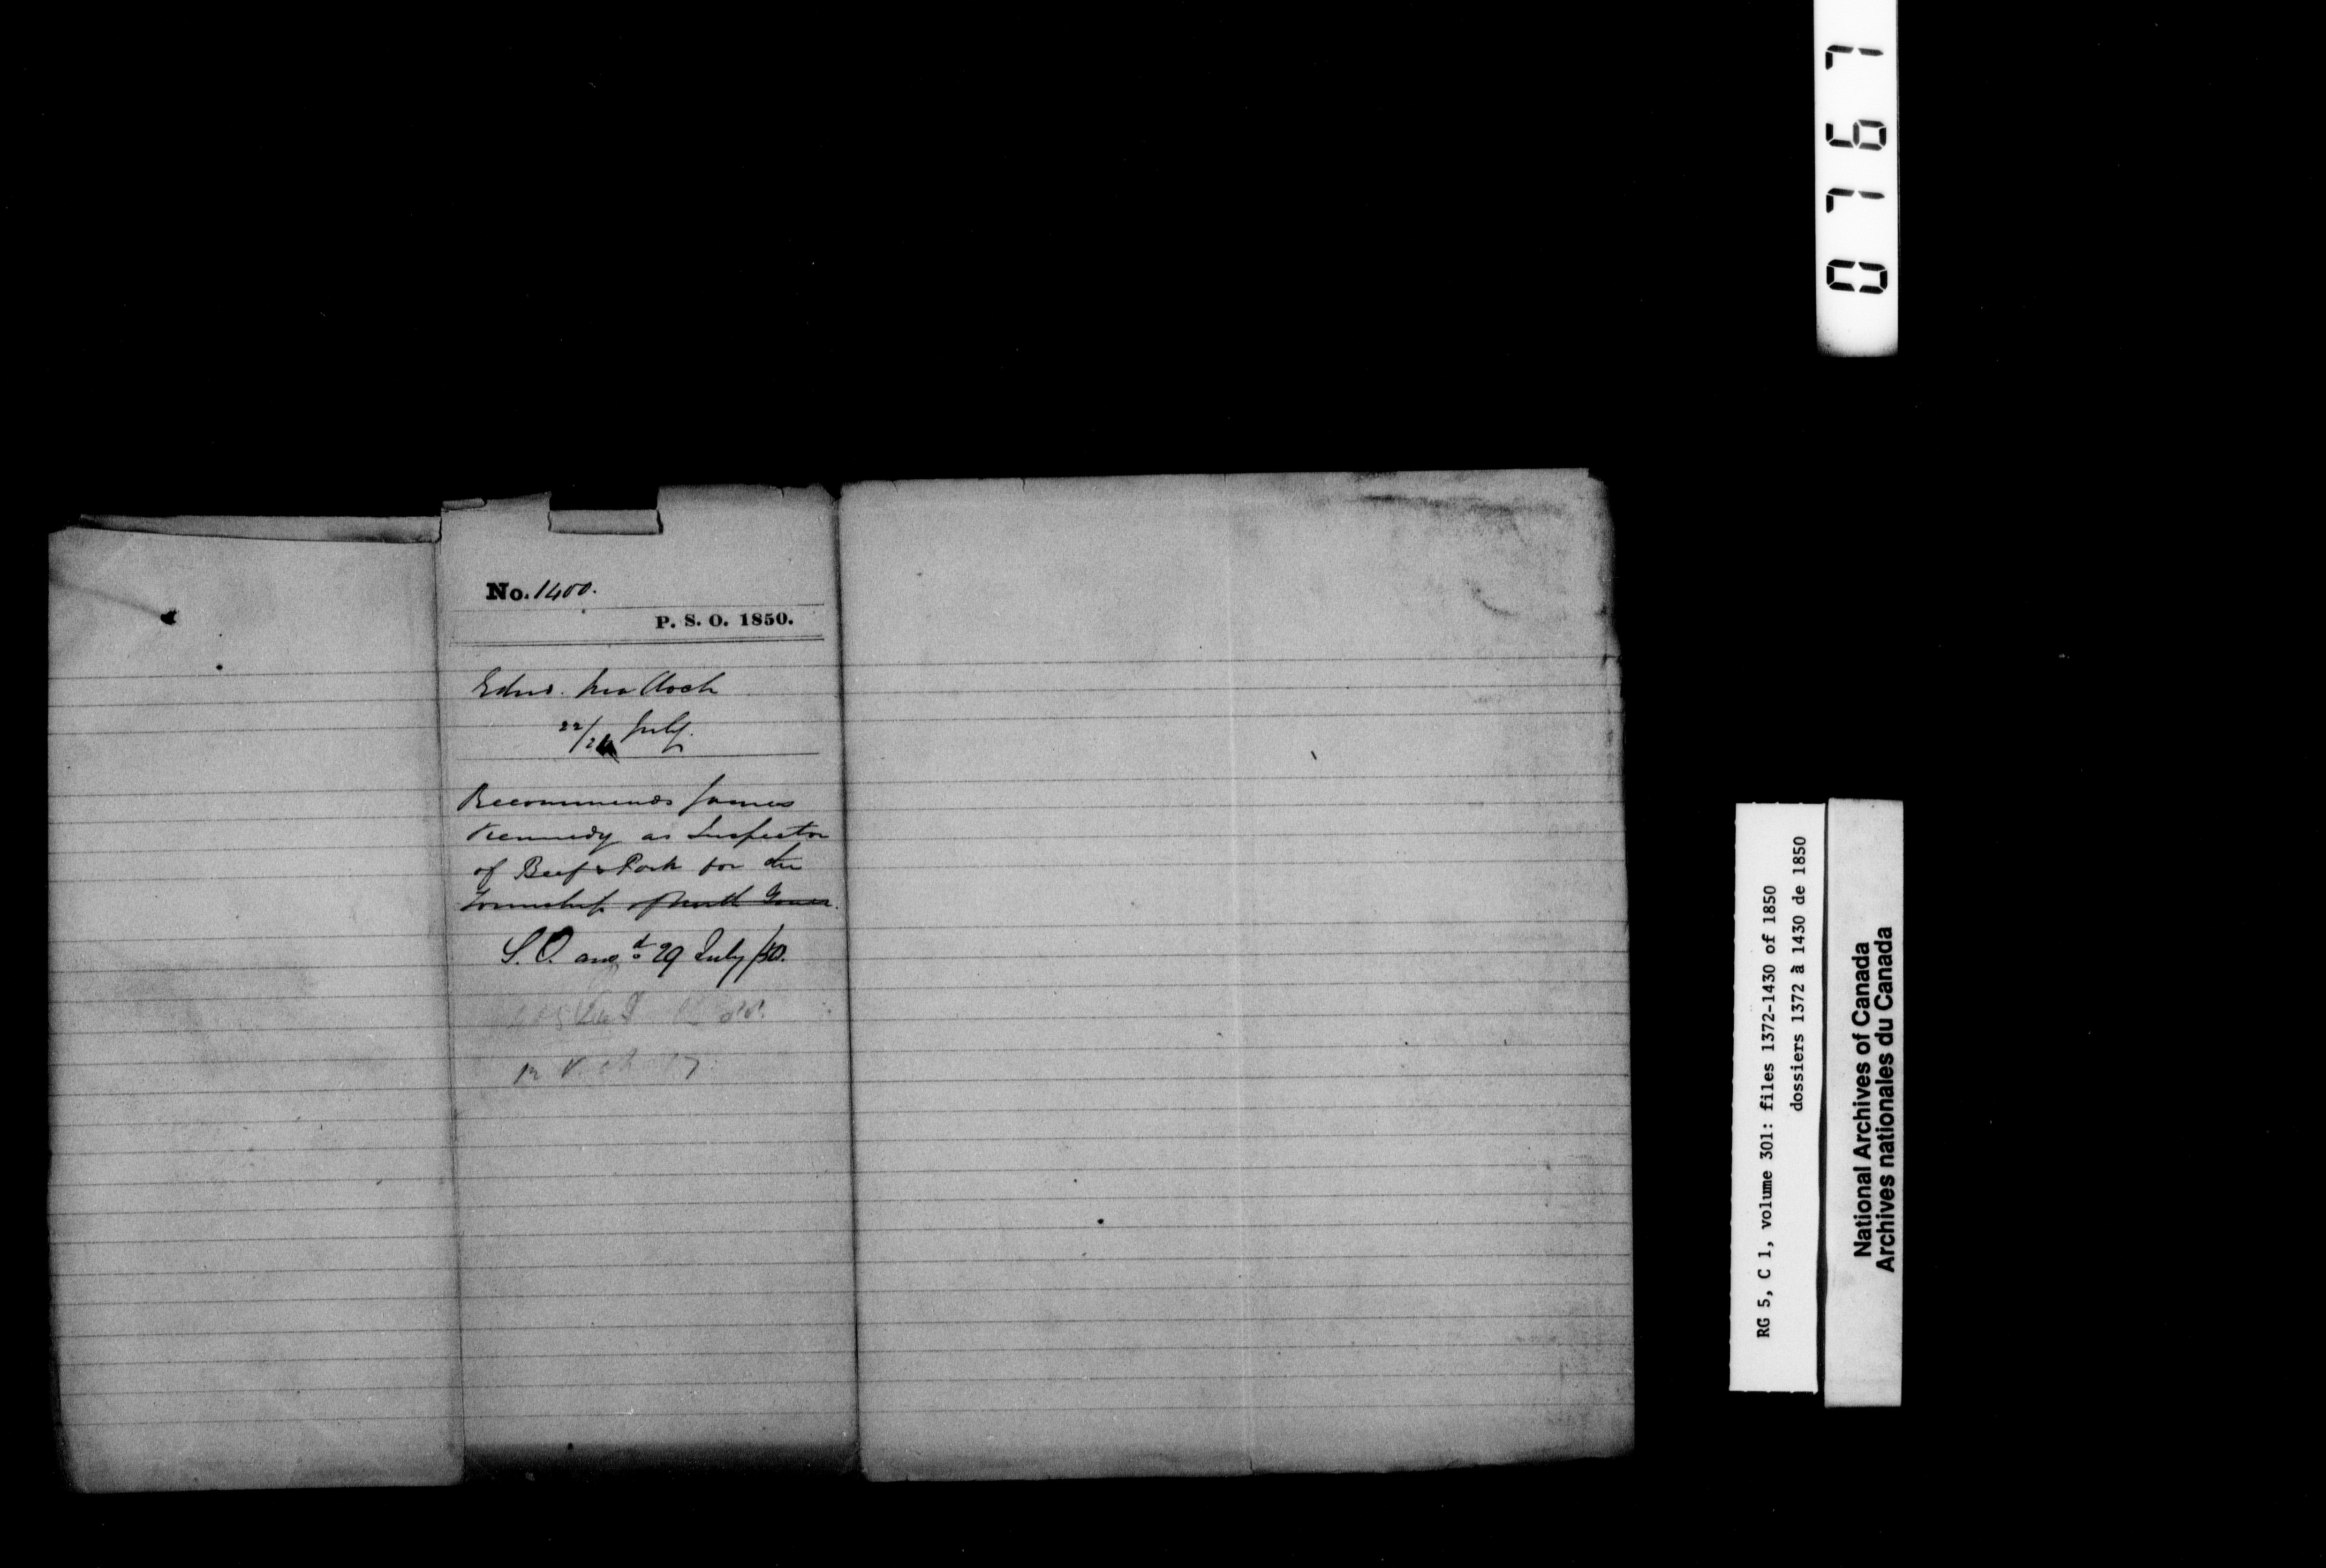 No. 1400.
P. S. O. 1850.
Edwd. Malloch
22/26 July.
Recommends James
Kennedy as Inspector
of Beef & Pork for the
Township of North Gower.
S. O. ansd 29 July /50.
0767
RG 5, C 1, volume 301: files 1372-1430 of 1850
dossiers 1372 à 1430 de 1850
National Archives of Canada
Archives nationales du Canada